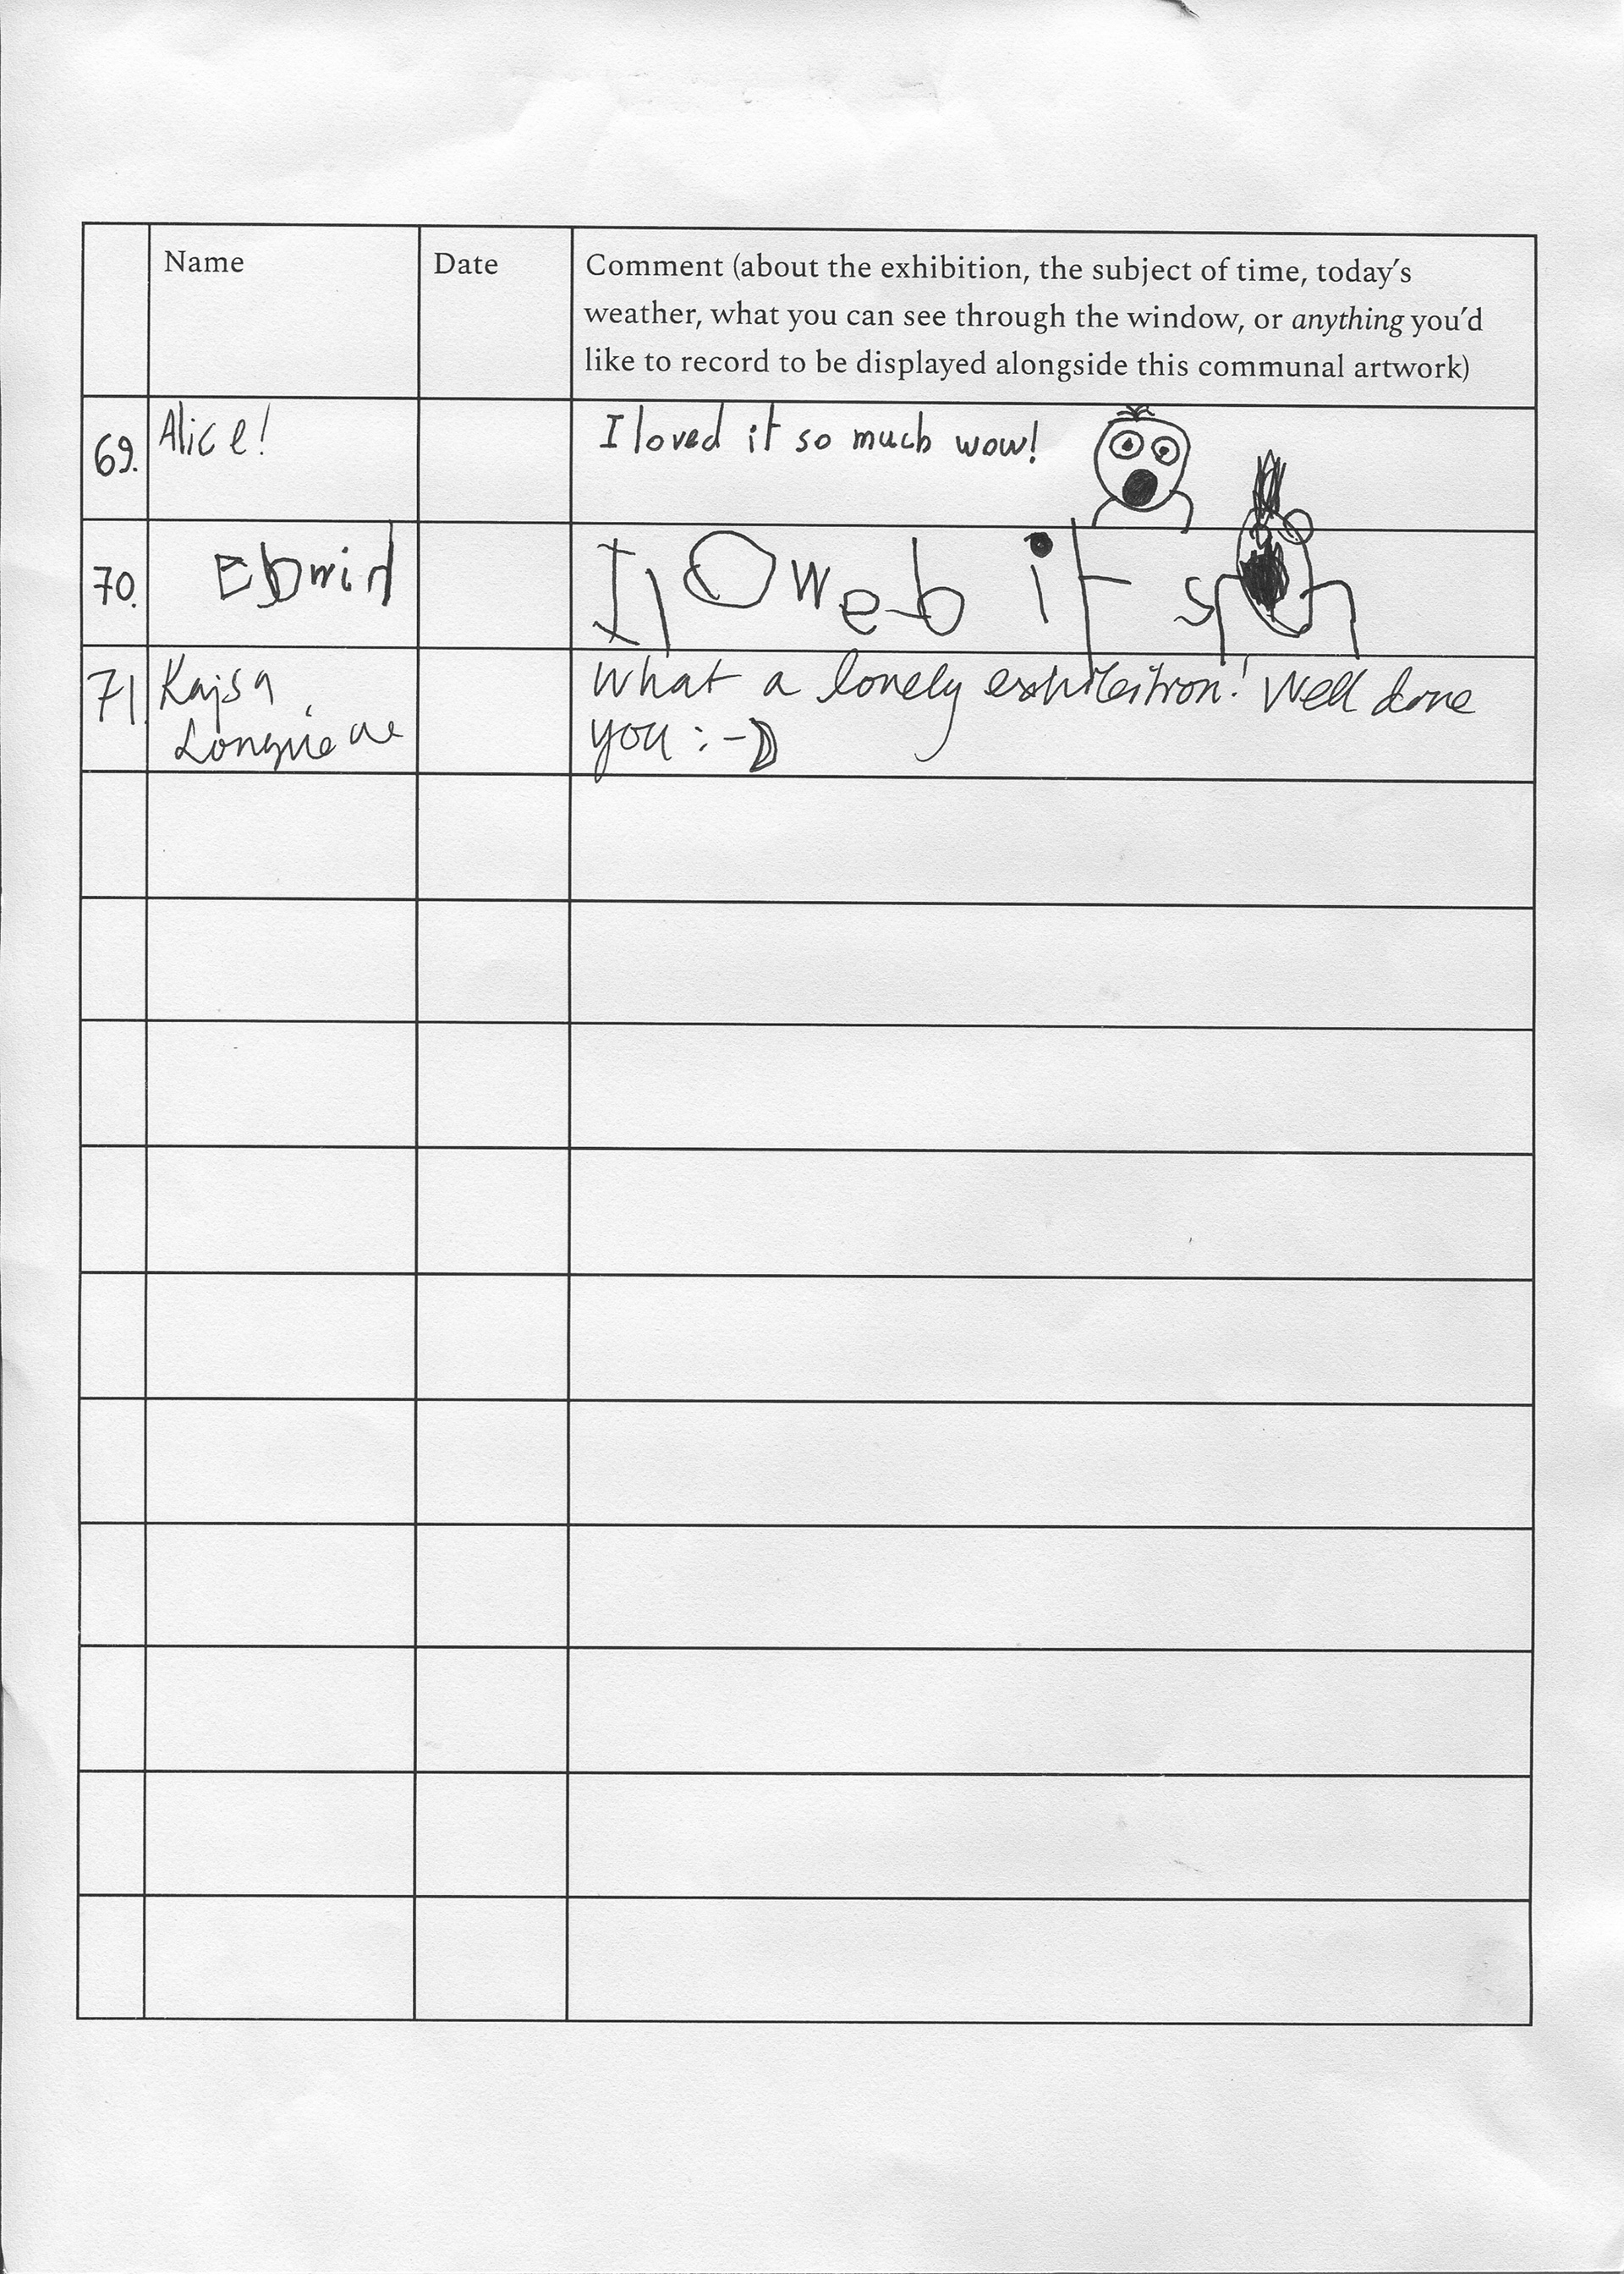 Name
Date
Comment (about the exhibition, the subject of time, today's
weather, what you can see through the window, or anything you'd
like to record to be displayed alongside this communal artwork)
69. Alice! I loved it so much wow!
70. Ebwin I lOweb it s
71. Kajsa What a lonely exhibition! Well done
you :-D